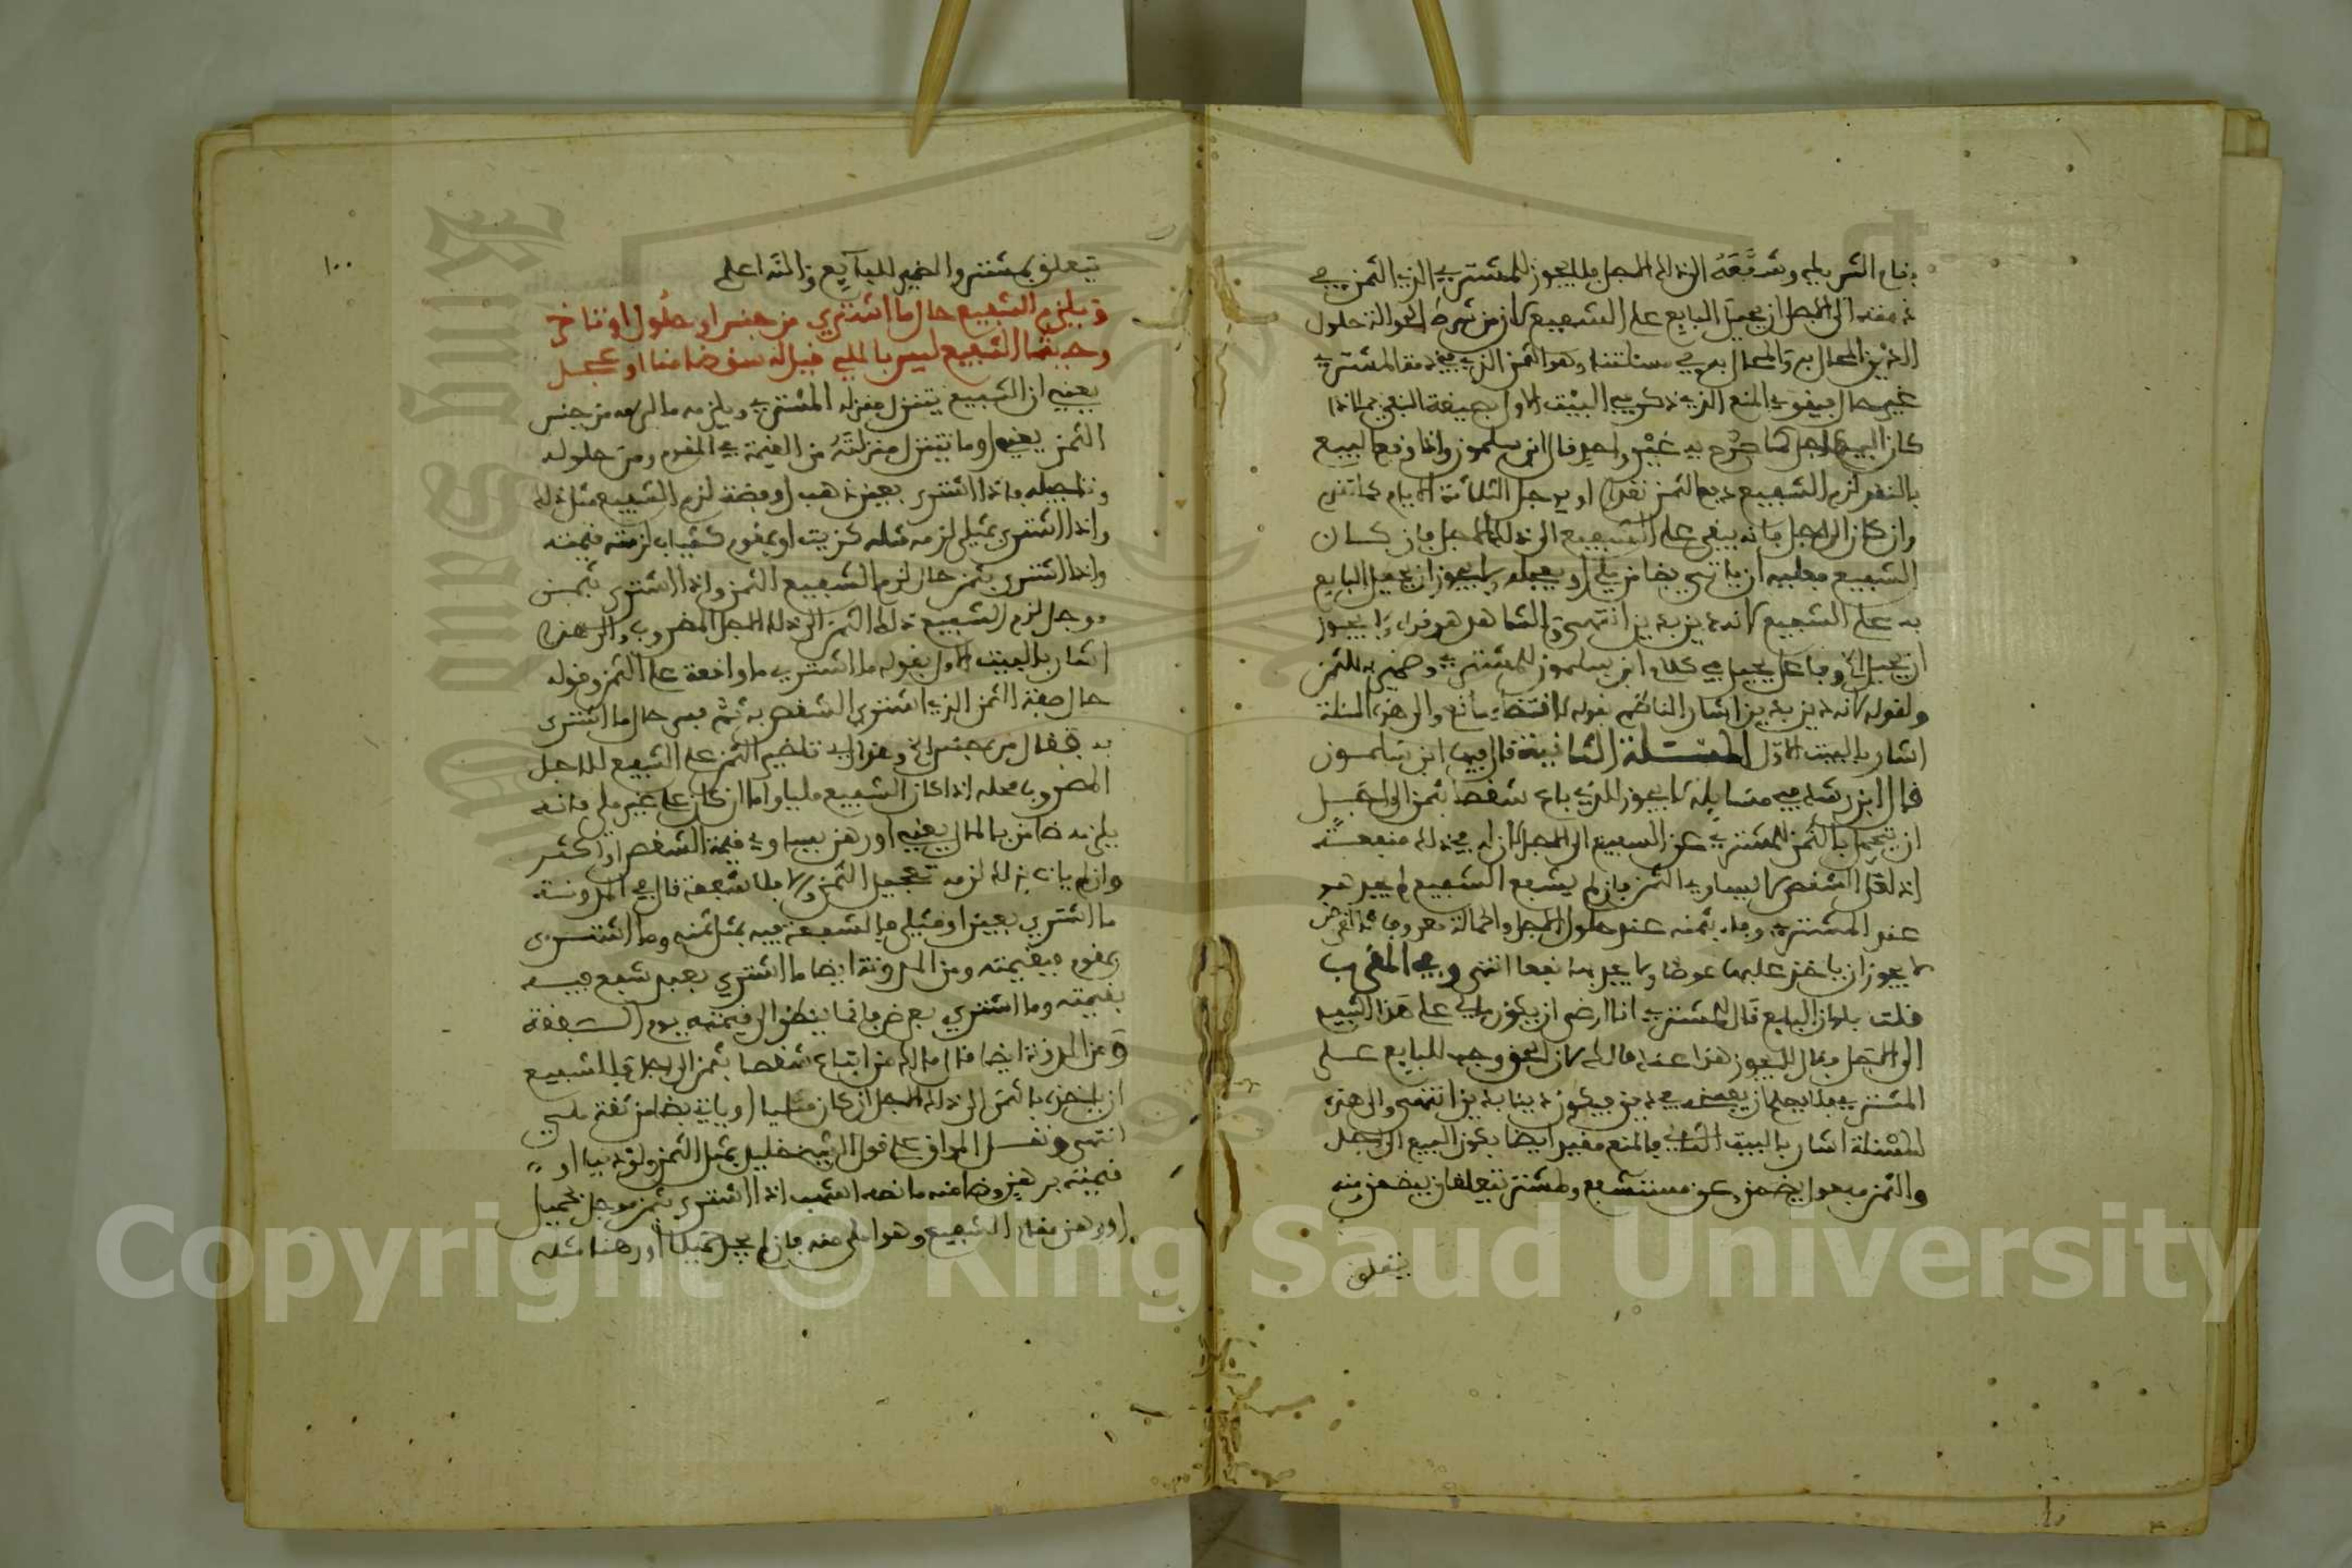 بقام الشريك وشفعه الى ذلك الاجل فلا يجوز للمشتري الذي الثمن في
ذمته الى الاجل ان يحيل البايع على الشفيع لان من شرط الحوالة حلول
الدين المحال به والمحال به في مسئلتنا وهو الثمن الذي في ذمة المشتري
غير حال فيقوي المنع الذي ذكر في البيت الاول بصيغة النفي بما اذا
كان البيع لاجل كما صرح به غير واحد قال ابن سلمون واذا وقع البيع
بالنقد لزم الشفيع دفع الثمن نقدا او يوجل الثلاثة الايام كما تقدم
وان كان الى اجل فانه يبقى على الشفيع الى ذلك الاجل فان كان
الشفيع فعليه ان ياتي بضامن ملي او يعجله ولا يجوز ان يحيل البايع
به على الشفيع لانه دين بدين انتهى والشاهد هو قوله ولا يجوز
ان يحيل الخ وفاعل يحيل في كلام ابن سلمون للمشتري وضمير به للثمن
ولقوله لانه دين بدين اشار الناظم بقوله لاقتضاء مانع والى هذه المسئلة
اشار بالبيت الاول المسئلة الثانية قال فيها ابن سلمون
قال ابن رشد في مسايله لا يجوز للذي باع شقصا بثمن الى اجل
ان يتحمل بالثمن للمشتري عن الشفيع الى الاجل لان له في ذلك منفعة
اذ لعل الشقص لا يساوي الثمن فان لم يشفع الشفيع لم يجد هو
عند المشتري وفاء بثمنه عند حلول الاجل والحمالة معروف كالقرض
لا يجوز ان ياخذ عليها عوضا ولا يجر بها نفعا انتهى وفي المقرب
قلت فلو ان البايع قال للمشتري انا ارضى ان يكون مالي على هذا الشفيع
الى الاجل فقال لا يجوز هذا عند مالك لان الحق وجب للبايع على
المشتري فلا يصلح ان يفسخه في دين فيكون دينا بدين انتهى والى هذه
المسئلة اشار بالبيت الثاني فالمنع مقيد ايضا بكون البيع الى اجل
والثمن مفعول يضمن وعن مستشفع ولمشتر يتعلقان بيضمن ومنه
يتعلق
١٠٠
يتعلق بمشتر والضمير للبايع والله اعلم
ويلزم الشفيع حال ما اشتري من جنس او حلول او تاخر
وحيثما الشفيع ليس بالملي قيل له سق ضامنا او عجل
يعني ان الشفيع يتنزل منزلة المشتري ويلزمه ما لزمه من جنس
الثمن يعني او ما يتنزل منزلته من القيمة في المقوم ومن حلوله
وتاجيله فاذا اشترى بعين ذهب او فضة لزم الشفيع مثل ذلك
واذا اشترى بمثلي لزمه مثله كزيت او بمقوم كثياب لزمته قيمته
واذا اشترى بثمن حال لزم الشفيع الثمن واذا اشترى بثمن
موجل لزم الشفيع ذلك الثمن الى ذلك الاجل المضروب والى هذا
اشار بالبيت الاول بقوله ما اشتري ما واقعة على الثمن وقوله
حال صفة الثمن الذي اشتري الشقص به ثم فسر حال ما اشترى
به فقال من جنس الخ وهذا اي تاخير الثمن على الشفيع للاجل
المضروب محله اذا كان الشفيع مليا واما ان كان غير ملي فانه
يلزمه ضامن بالمال يعني او رهن يساوي قيمة الشقص او اكثر
وان لم يات بذلك لزمه تعجيل الثمن والا فلا شفعة قال في المدونة
ما اشتري بعين او مثلي فالشفعة فيه بمثل ثمنه وما اشترى
بمقوم فبقيمته ومن المدونة ايضا ما اشتري بعبد شفع فيه
بقيمته وما اشتري بعرض فانما ينظر الى قيمته يوم الصفقة
ومن المدونة ايضا قال مالك من ابتاع شقصا بثمن الى اجل فللشفيع
ان ياخذه بالثمن الى ذلك الاجل ان كان مليا او ياتي بضامن ثقة ملي
انتهى ونقل المواق على قول الشيخ خليل بمثل الثمن ولو دينا او
قيمته برهنه وضامنه ما نصه اشهب اذا اشترى بثمن موجل بحميل
او رهن فقام الشفيع وهو املى منه فان لم يجد حميلا او رهنا مثله